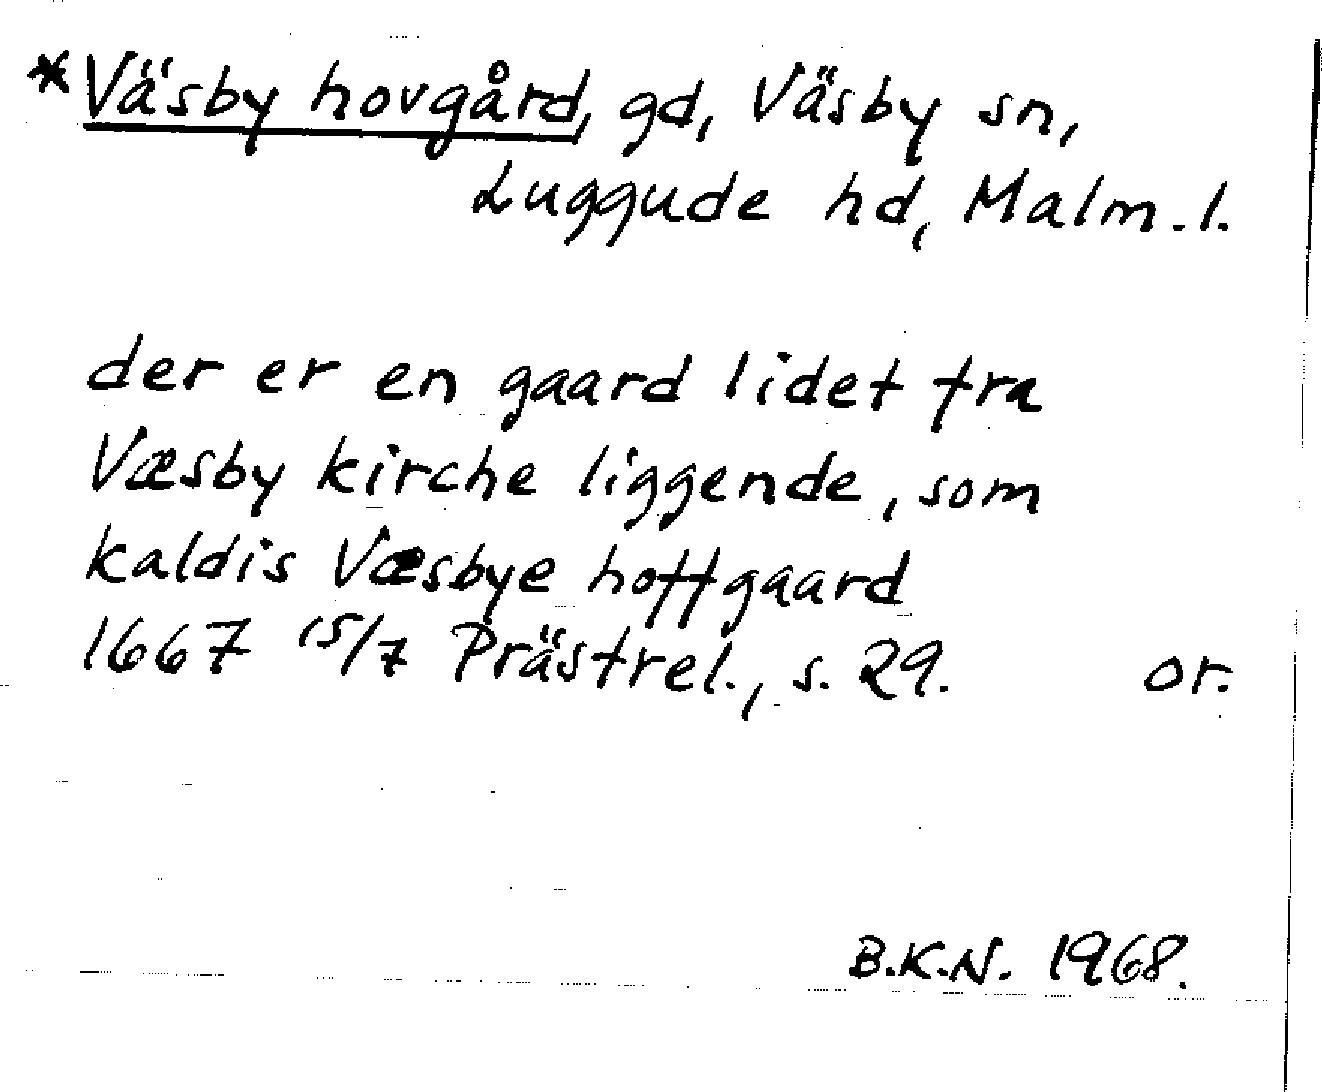 *Väsby hovgård, gd, Väsby sn,
Luggude hd, Malm. l.
der er en gaard lidet fra
Væsby kirche liggende, som
kaldis Væsbye hoffgaard
1667 15/7 Prästrel., s. 29. or.
B.K.N. 1968.